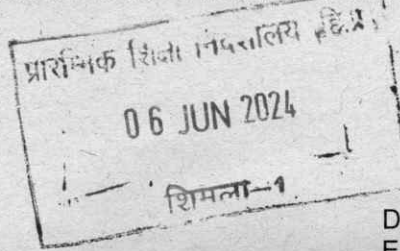 प्रारम्भिक शिक्षा निदेशालय हि.प्र.
06 JUN 2024
शिमला-1
D
E